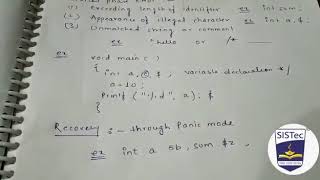 (1) Exceeding length of identifier ex int sum;
(2) Appearance of illegal character ex int a, $;
(3) Unmatched string or comment
ex +hello or /*
ex void main()
{ int a, @, $, variable declaration */
a = 10;
Printf ("%d", a); $
}
Recovery :- through Panic mode
ex int a 5b, sum $2,
SISTec